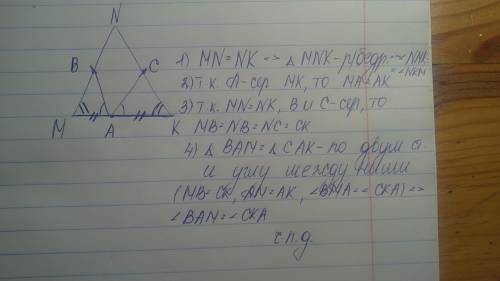 N
B
C
M
A
K
1) MN = NK => △ MNK - р/бедр. => ∠NMK
= ∠NKM
2) Т.к. A - сер MK, то MA = AK
3) Т.к. MN = NK, B и C - сер, то
MB = NB = NC = CK
4) △ BAM = △ CAK - по двум ст.
и углу между ними
(MB = CK, AM = AK, ∠BMA = ∠CKA) =>
∠BAM = ∠CKA
ч.п.д.